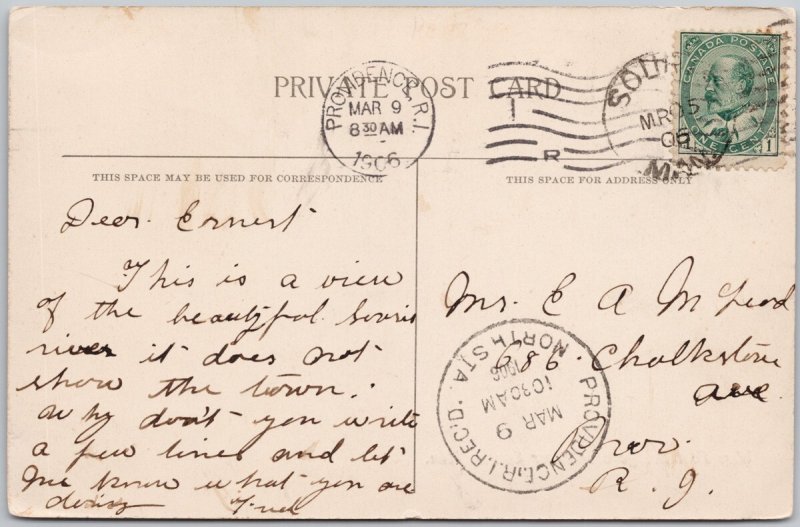 PRIVATE POST CARD
PROVIDENCE, R.I.
MAR 9
8 30 AM
1906
CANADA POSTAGE
ONE CENT
1
MR 5
MAN
THIS SPACE MAY BE USED FOR CORRESPONDENCE
THIS SPACE FOR ADDRESS ONLY
Dear Ernest
This is a view
of the beautiful Souris
river it does not
show the town.
Why don't you write
a few lines and let
me know what you are
doing
Mr. E A McLeod
686 Chalkstone
ave
Prov.
R. I.
PROVIDENCE, R.I. REC'D.
NORTH STA.
1906
10 30 AM
MAR 9